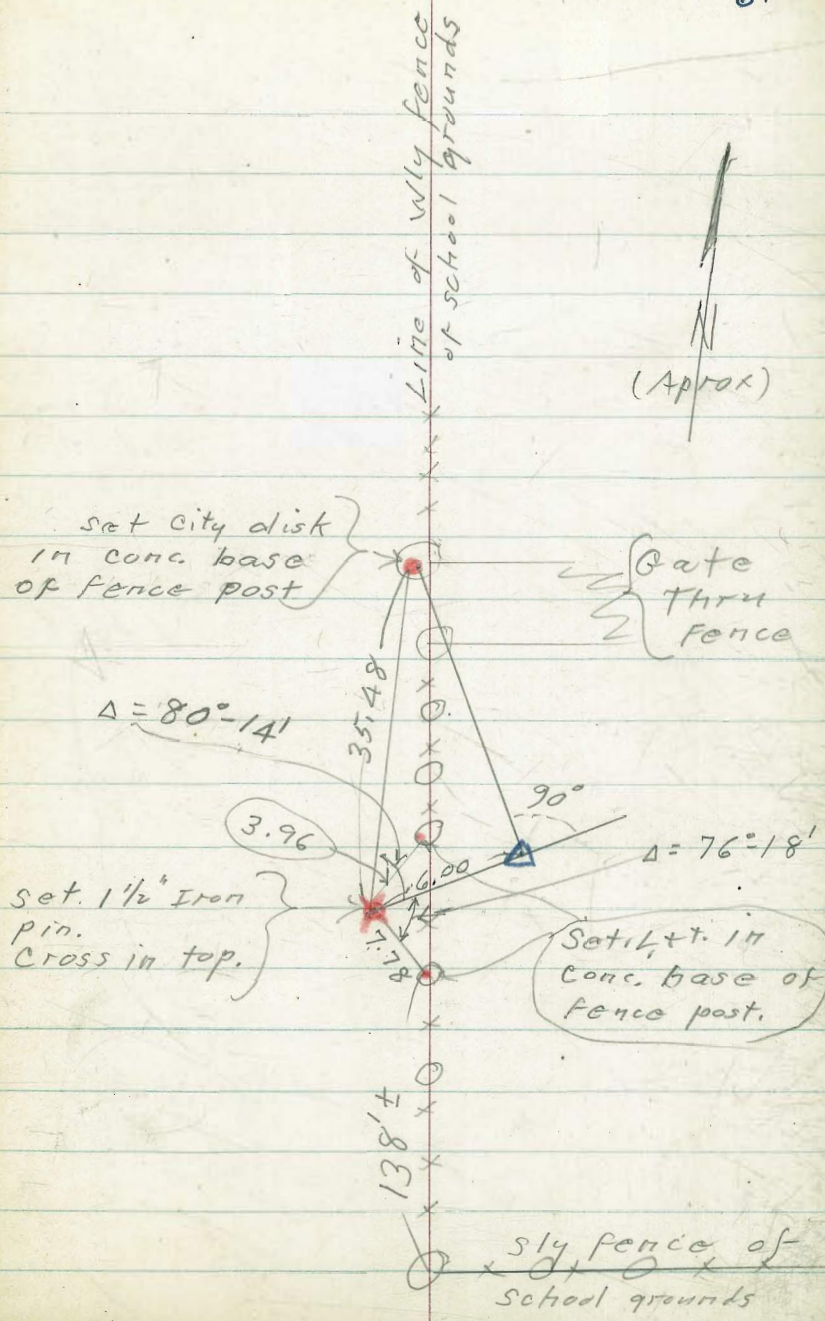 Line of Wly fence
of school grounds
N
(Aprox)
set City disk
in conc. base
of fence post
Gate
Thru
Fence
35.48
Δ = 80°-14'
90°
3.96
6.00
Δ = 76°-18'
set. 1 1/2" Iron
pin.
Cross in top.
7.78
Set L+T. in
Conc. base of
fence post.
138'±
Sly fence of
School grounds